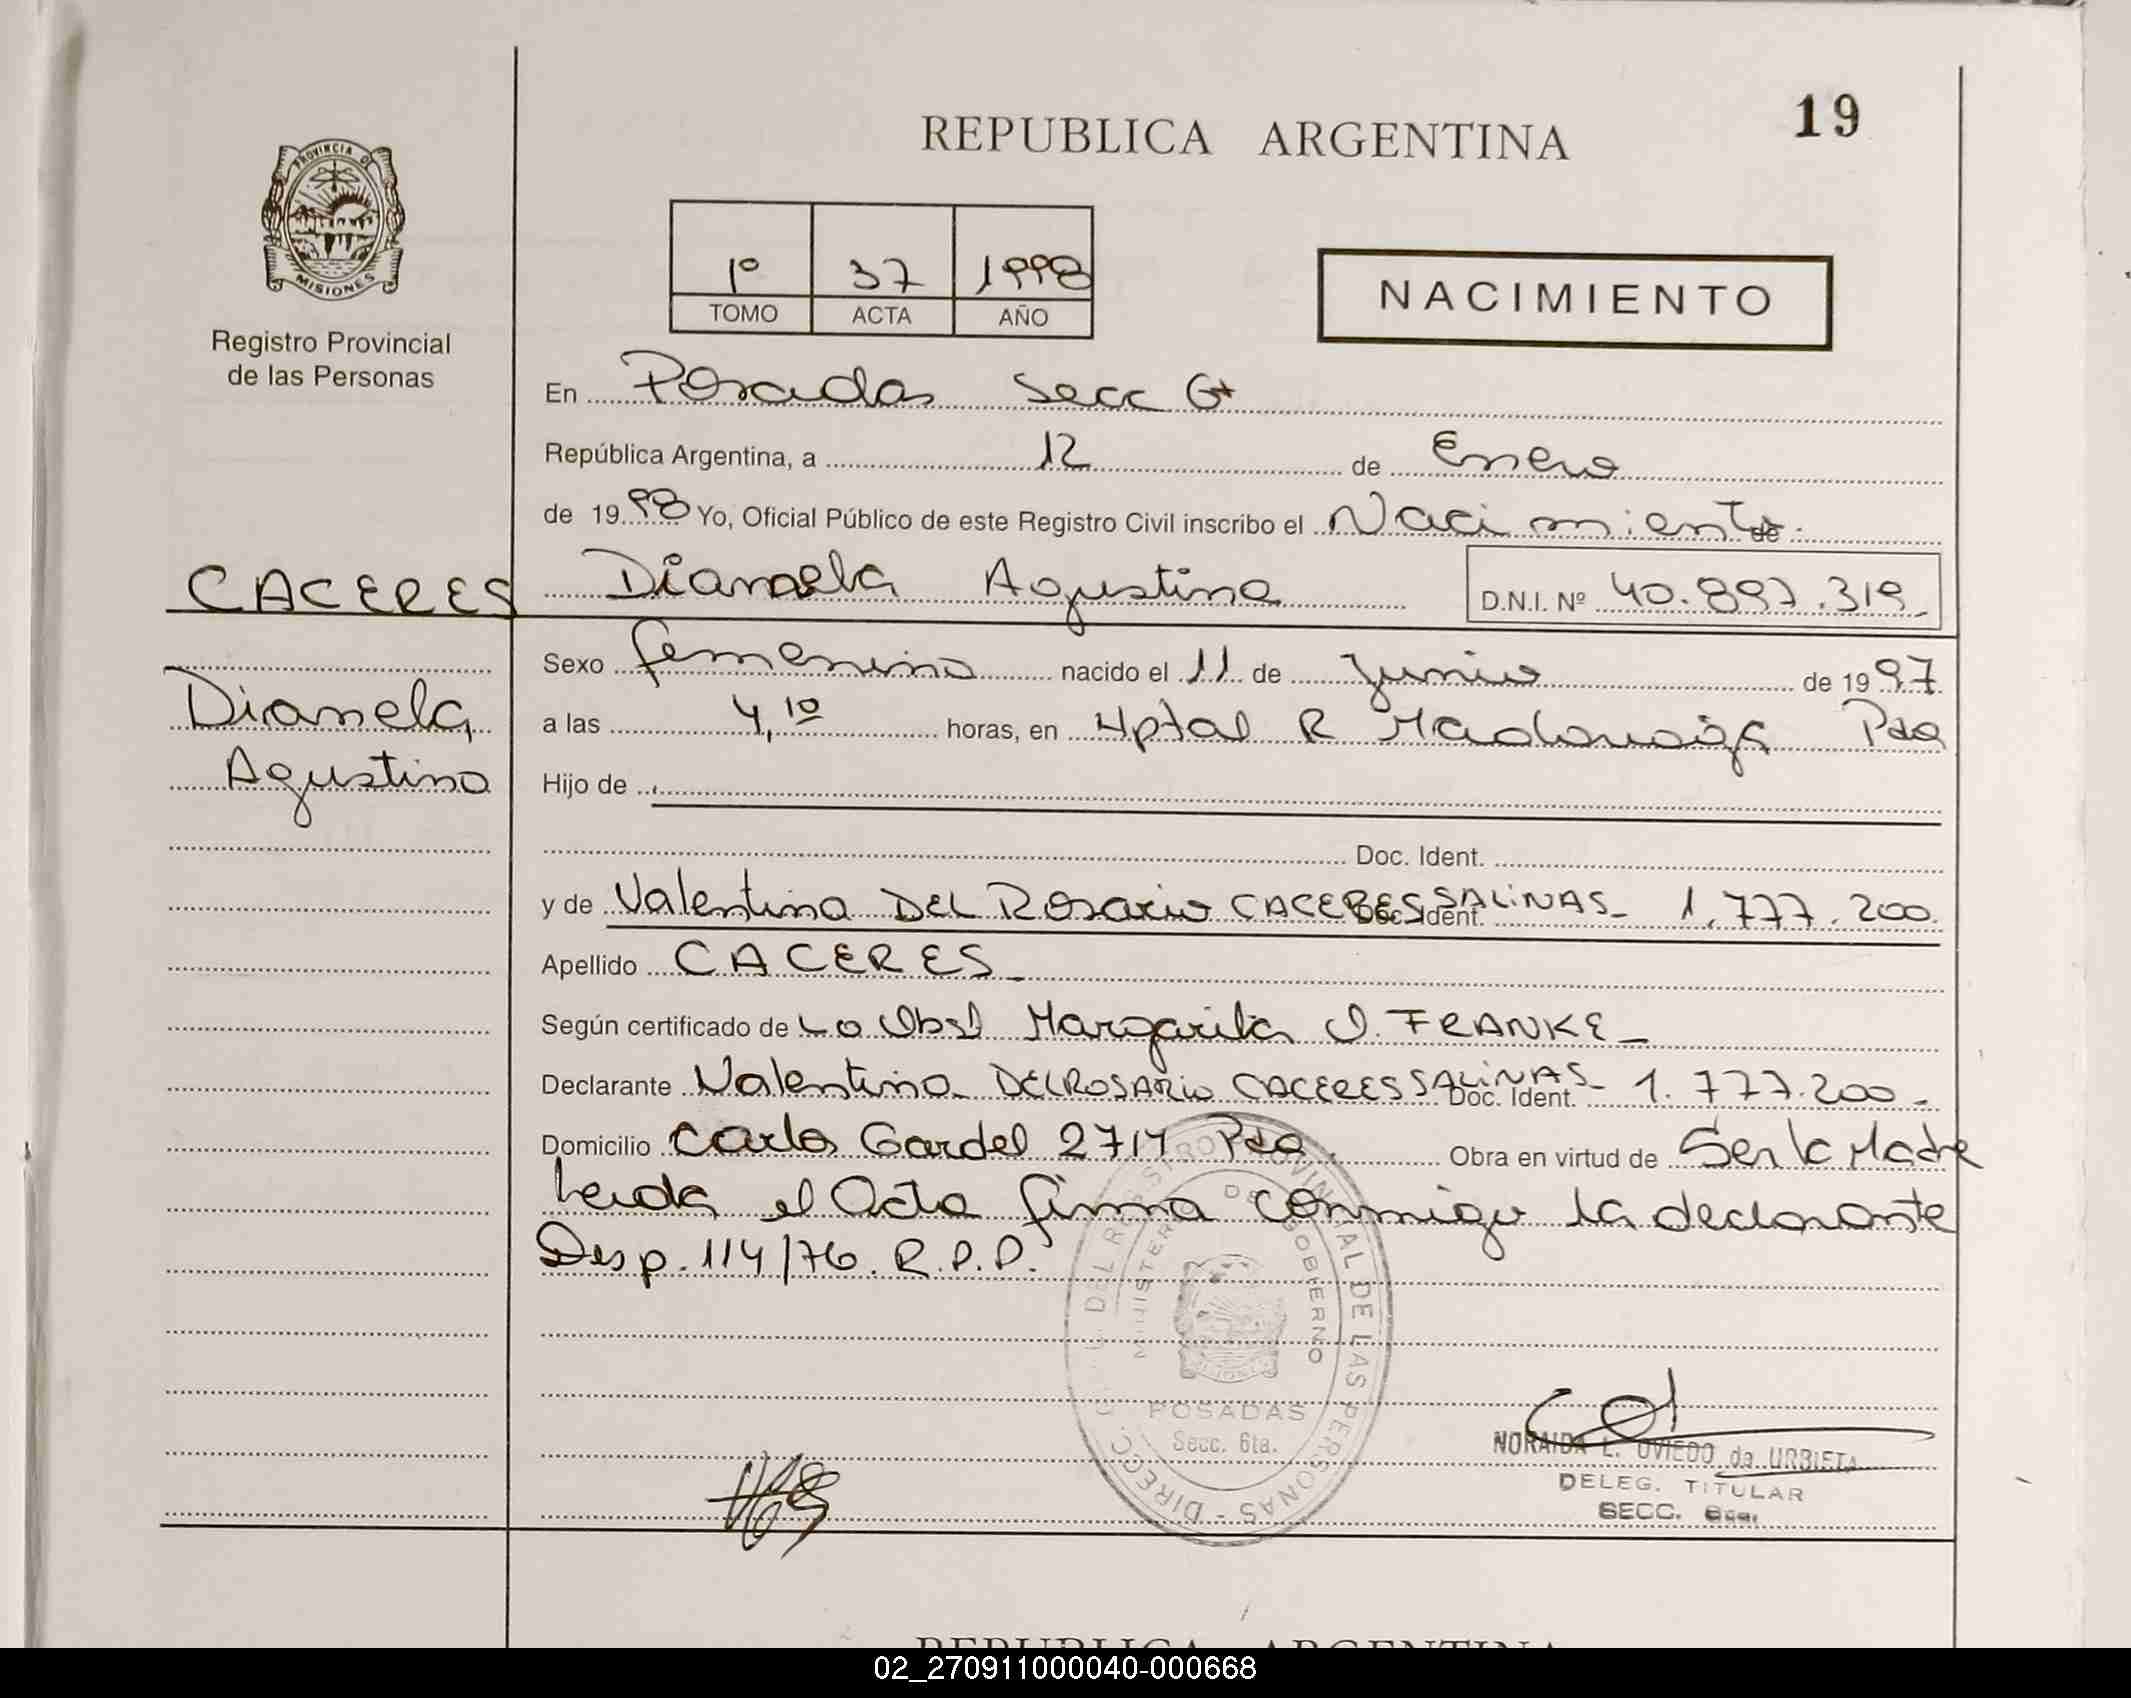 19
REPUBLICA ARGENTINA
PROVINCIA DE
MISIONES
Registro Provincial
de las Personas
1º 37 1998
TOMO ACTA AÑO
NACIMIENTO
En Posadas Secc 6ª
República Argentina, a 12 de Enero
de 1998 Yo, Oficial Público de este Registro Civil inscribo el Nacimiento de
CACERES Dianela Agustina D.N.I. Nº 40.897.319_
Sexo femenino nacido el 11 de Junio de 1997
Dianela
a las 4,10 horas, en Hptal R Madariaga Pdas
Agustina
Hijo de
Doc. Ident.
y de Valentina DEL Rosario CACERES SALINAS_ Doc. Ident. 1.777.200.
Apellido CACERES_
Según certificado de La Obst Margarita O. FRANKE_
Declarante Valentina DEL ROSARIO CACERES SALINAS_ Doc. Ident. 1.777.200_
Domicilio Carlos Gardel 2717 Pdas. Obra en virtud de Ser la Madre
Leida el Acta firma conmigo la declarante
Desp. 114/76. R.P.P.
DIRECC. DEL REGISTRO PROVINCIAL DE LAS PERSONAS -
MINISTERIO DE GOBIERNO
POSADAS
Secc. 6ta.
NORAIDA L. OVIEDO de URBIETA
DELEG. TITULAR
SECC. 6ta.
REPUBLICA ARGENTINA
02_270911000040-000668